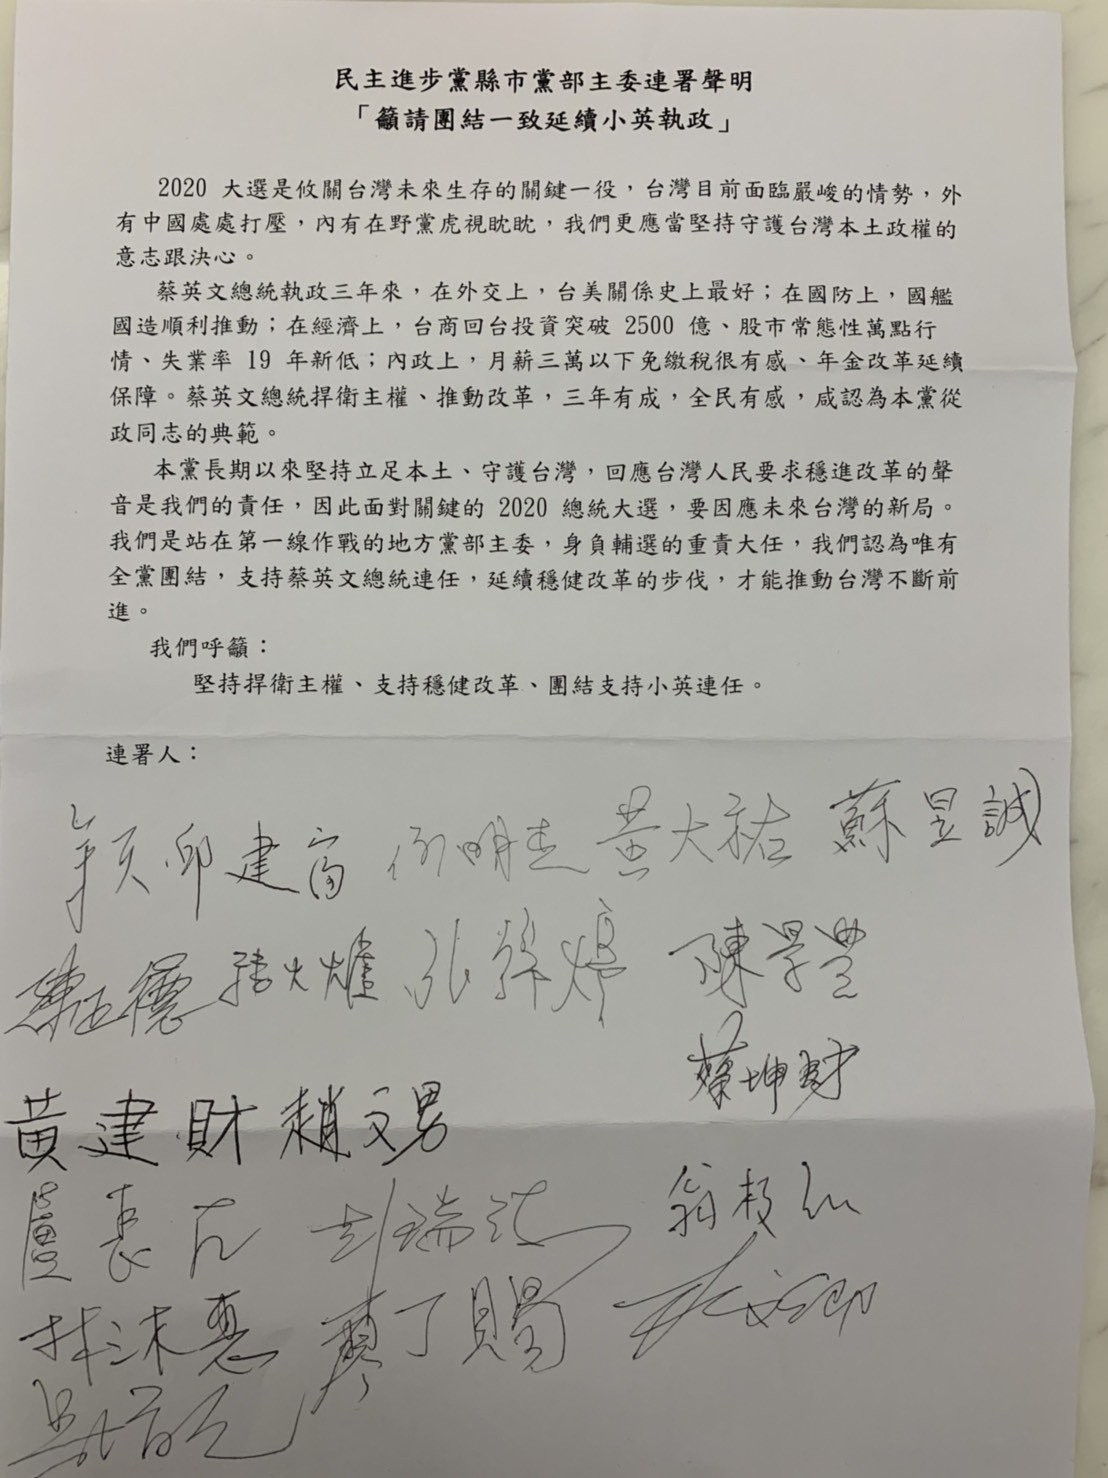 民主進步黨縣市黨部主委連署聲明
「籲請團結一致延續小英執政」
2020 大選是攸關台灣未來生存的關鍵一役，台灣目前面臨嚴峻的情勢，外
有中國處處打壓，內有在野黨虎視眈眈，我們更應當堅持守護台灣本土政權的
意志跟決心。
蔡英文總統執政三年來，在外交上，台美關係史上最好；在國防上，國艦
國造順利推動；在經濟上，台商回台投資突破 2500 億、股市常態性萬點行
情、失業率 19 年新低；內政上，月薪三萬以下免繳稅很有感、年金改革延續
保障。蔡英文總統捍衛主權、推動改革，三年有成，全民有感，咸認為本黨從
政同志的典範。
本黨長期以來堅持立足本土、守護台灣，回應台灣人民要求穩進改革的聲
音是我們的責任，因此面對關鍵的 2020 總統大選，要因應未來台灣的新局。
我們是站在第一線作戰的地方黨部主委，身負輔選的重責大任，我們認為唯有
全黨團結，支持蔡英文總統連任，延續穩健改革的步伐，才能推動台灣不斷前
進。
我們呼籲：
堅持捍衛主權、支持穩健改革、團結支持小英連任。
連署人：
邱建富 何明杰 黃大祐 蘇昱誠
陳正德 陳學豐
蔡坤財
黃建財 趙文男
林沐惠